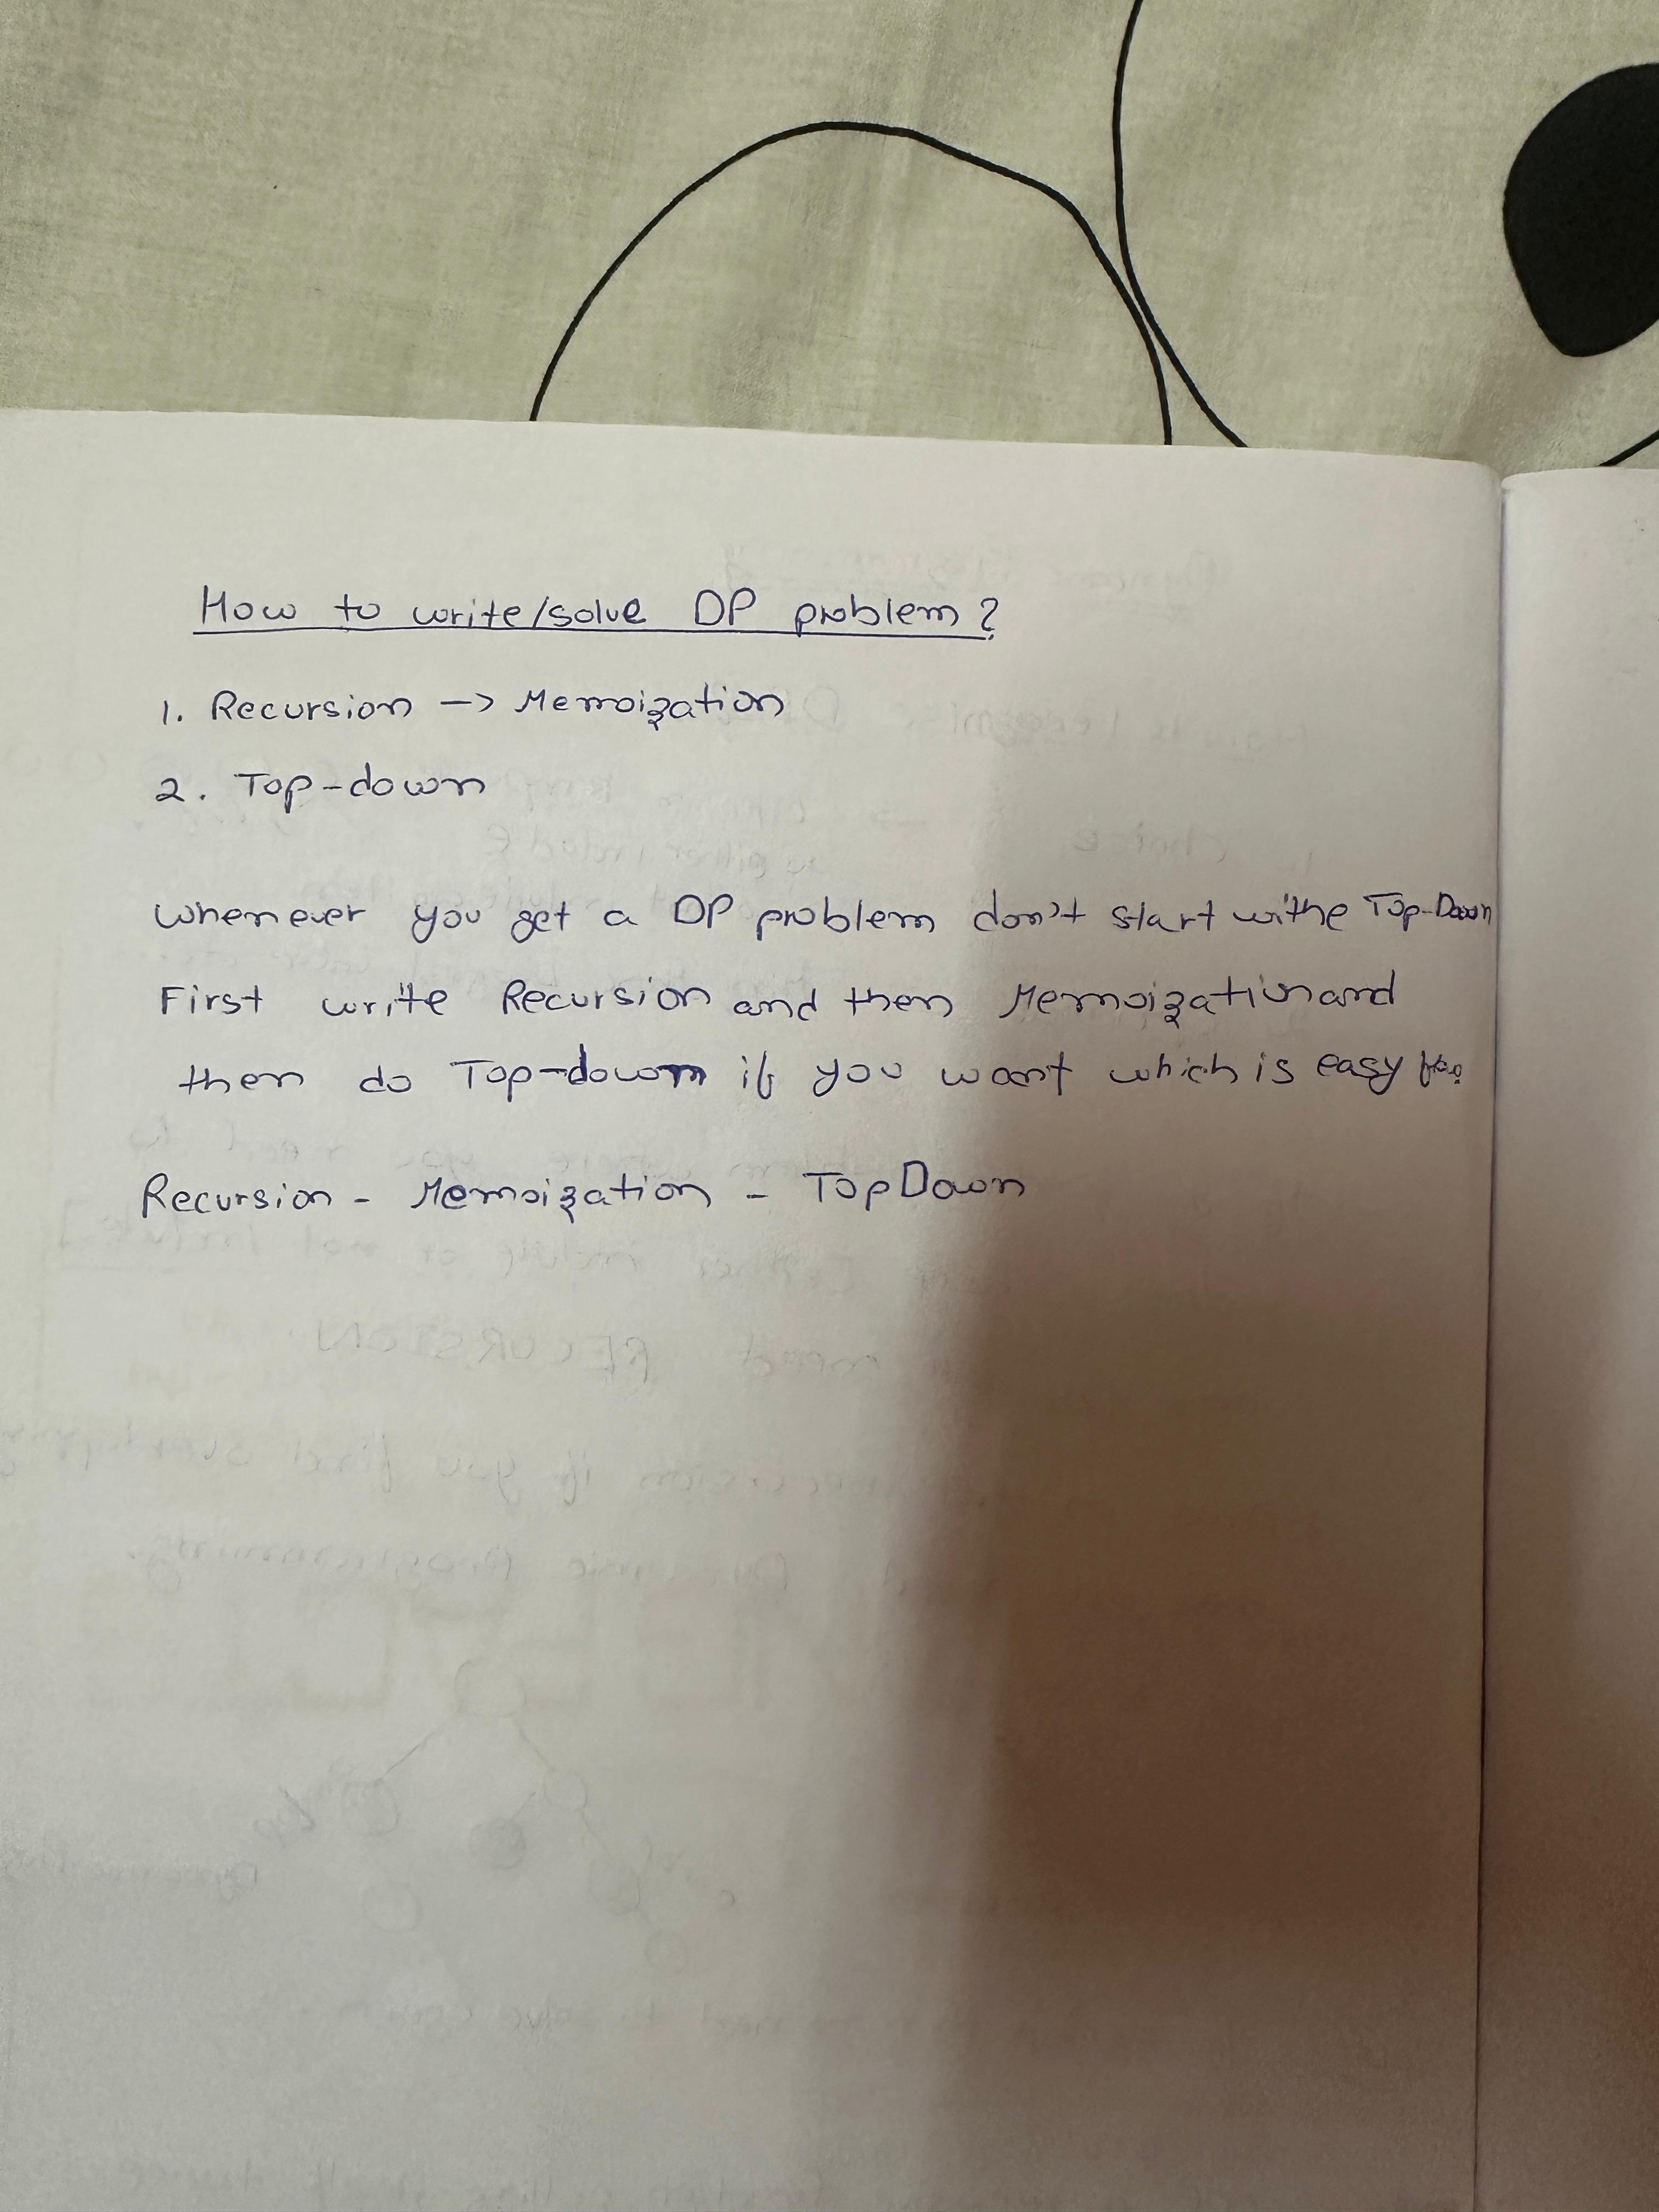 How to write/solve DP problem?
1. Recursion -> Memoization
2. Top-down
Whenever you get a DP problem don't start withe Top-Down
First write Recursion and then Memoization and
then do Top-down if you want which is easy
Recursion - Memoization - TopDown